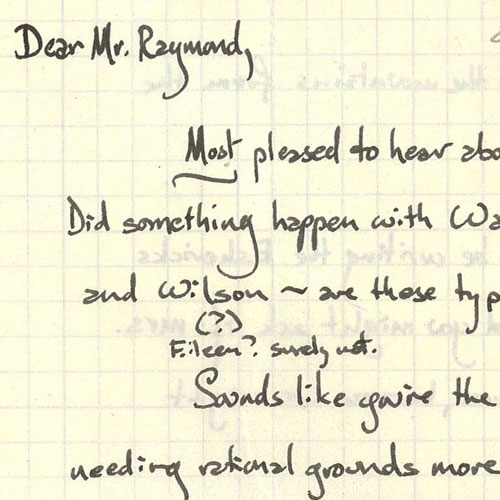 Dear Mr. Raymond,
Most pleased to hear abo
Did something happen with Wa
and Wilson ~ are those typ
(?)
Eileen? surely not.
Sounds like you're the
needing rational grounds more